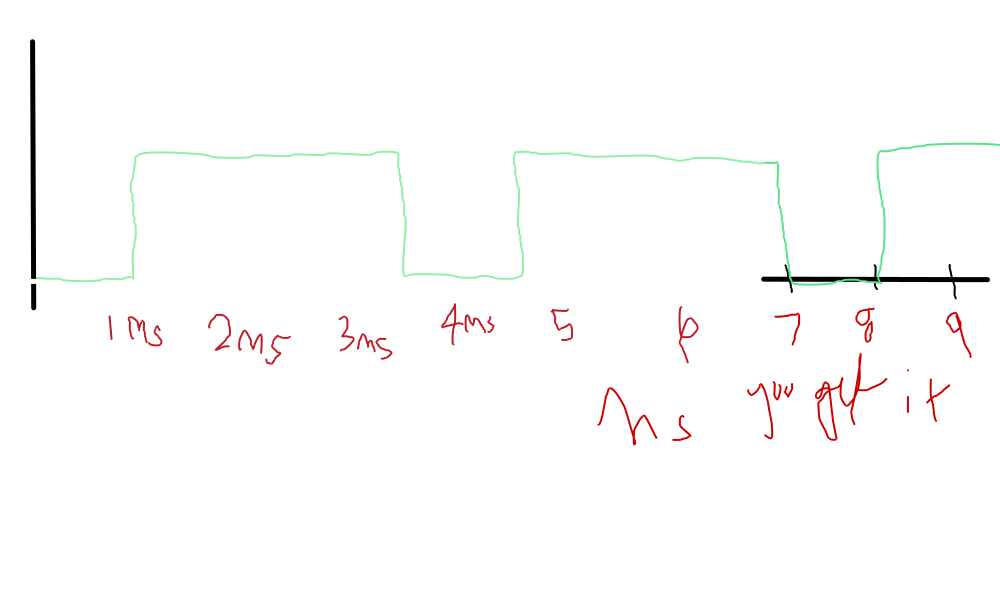 1ms 2ms 3ms 4ms 5 6 7 8 9
ms you get it